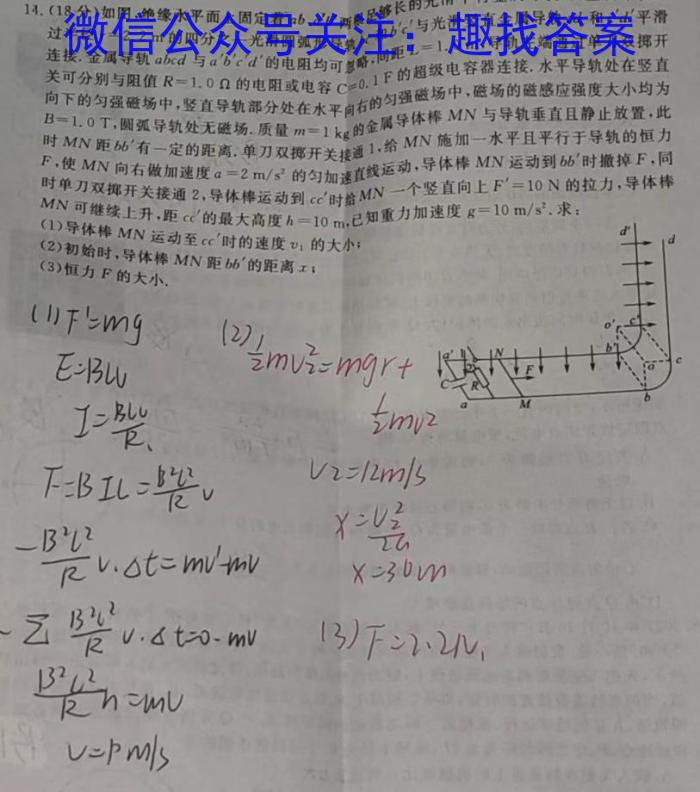 14.(18分)如图,绝缘水平面
微信公众号关注：趣找答案
连接.金属导轨abcd与a'b'c'd'的电阻均可忽略,间距
关可分别与阻值R=1.0Ω的电阻或电容C=0.1F的超级电容器连接.水平导轨处在竖直
向下的匀强磁场中,竖直导轨部分处在水平向右的匀强磁场中,磁场的磁感应强度大小均为
B=1.0T,圆弧导轨处无磁场.质量m=1kg的金属导体棒MN与导轨垂直且静止放置,此
时MN距bb'有一定的距离.单刀双掷开关接通1,给MN施加一水平且平行于导轨的恒力
F,使MN向右做加速度a=2m/s²的匀加速直线运动,导体棒MN运动到bb'时撤掉F,同
时单刀双掷开关接通2,导体棒运动到cc'时给MN一个竖直向上F'=10N的拉力,导体棒
MN可继续上升,距cc'的最大高度h=10m,已知重力加速度g=10m/s².求:
(1)导体棒MN运动至cc'时的速度v₁的大小;
(2)初始时,导体棒MN距bb'的距离x;
(3)恒力F的大小.
(1)F'=mg
E=BLv
I=BLv/R
F=BIL=B²L²/R v
-B²L²/R v·Δt=mv'-mv
-Σ B²L²/R v·Δt=0-mv
B²L²/R h=mv
(2) ½mv₂²=mgr+
½mv²
v2=12m/s
x=v₂²/2a
x=36m
(3)F=2.2N
d' d
c' o' b' N
a' C R F o c
a M b